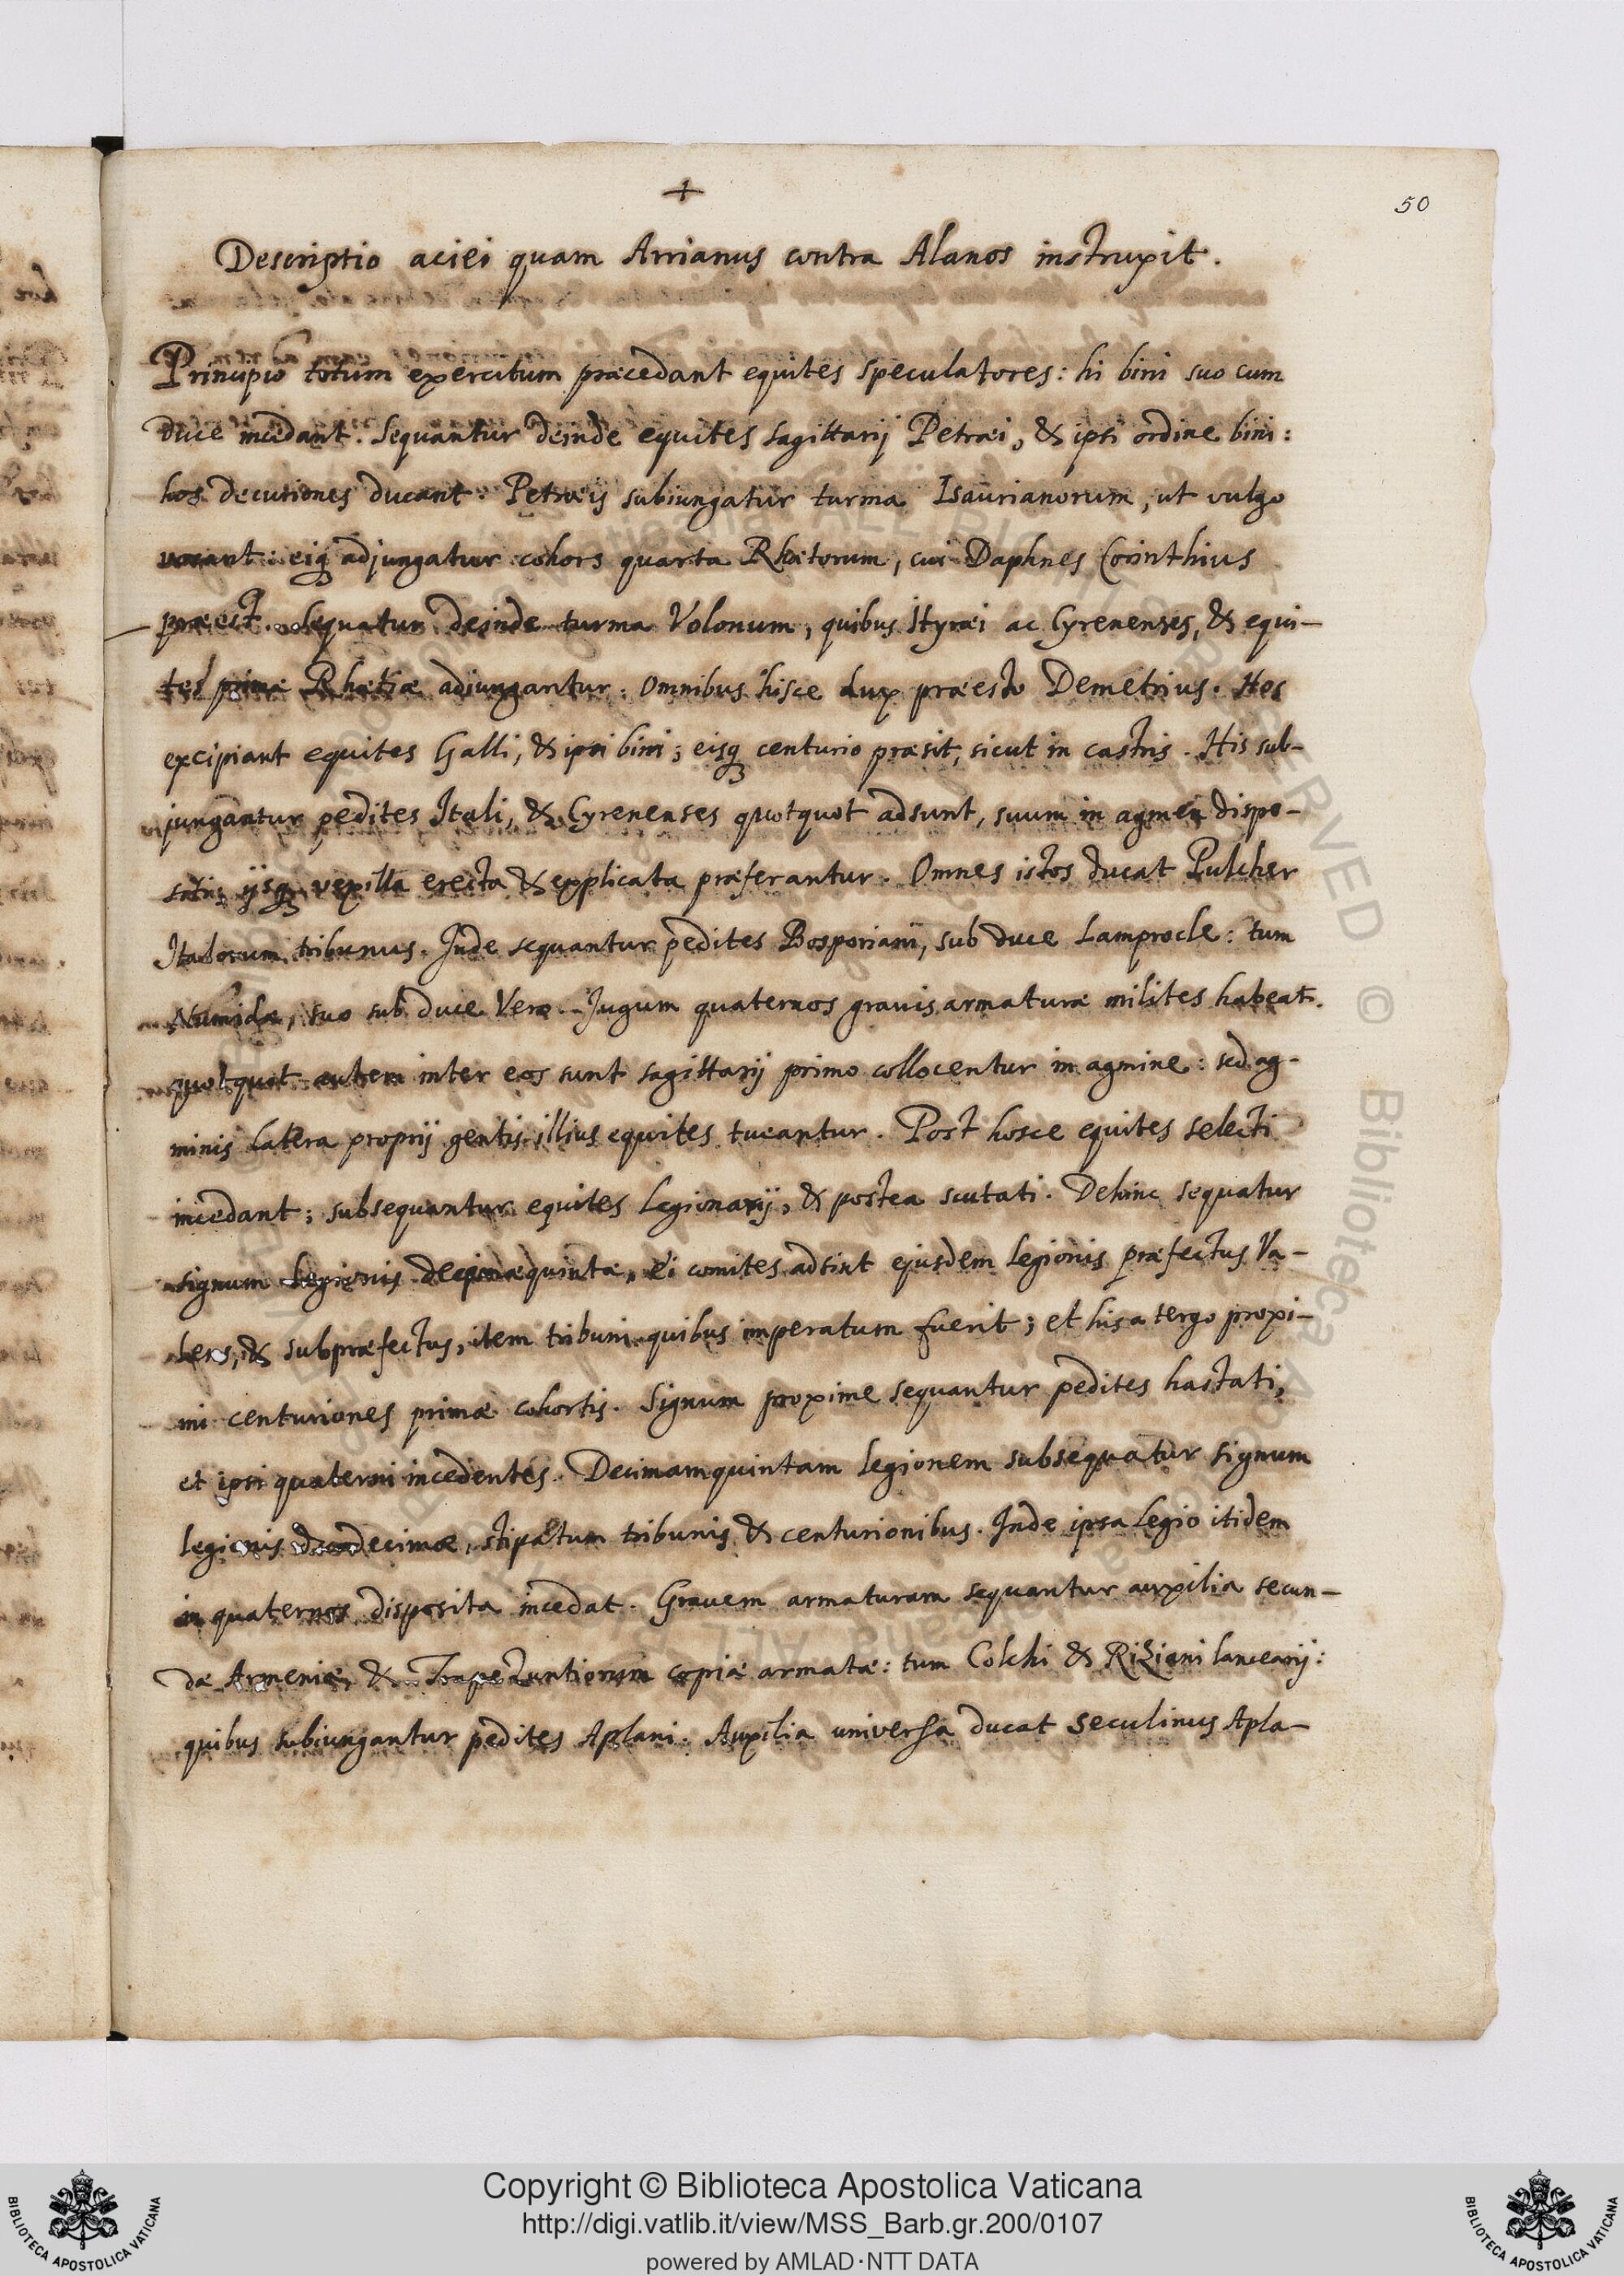 50
Descriptio aciei quam Arrianus contra Alanos instruxit.
Principio totum exercitum præcedant equites speculatores: hi bini suo cum
duce incedant. Sequantur deinde equites sagittarij Petræi, & ipsi ordine bini:
hos decuriones ducant. Petræis subiungatur turma Isaurianorum, ut vulgo
vocant: eiq adjungatur cohors quarta Rhætorum, cui Daphnes Corinthius
præest. Sequatur deinde turma Volonum, quibus Ityræi ac Cyrenenses, & equi-
tes primæ Rhætiæ adiungantur. Omnibus hisce dux præesto Demetrius. Hos
excipiant equites Galli, & ipsi bini; eisq centurio præsit, sicut in castris. His sub-
jungantur pedites Itali, & Cyrenenses quotquot adsunt, suum in agmen dispo-
siti; ijsq vexilla erecta & explicata præferantur. Omnes istos ducat Pulcher
Italorum tribunus. Inde sequantur pedites Bosporiani, sub duce Lamprocle: tum
Numidæ, suo sub duce Vero. Jugum quaternos grauis armaturæ milites habeat.
quotquot autem inter eos sunt sagittarij primo collocentur in agmine: sed ag-
minis latera proprij gentis illius equites tueantur. Post hosce equites selecti
incedant; subsequantur equites Legionarij, & postea scutati. Dehinc sequatur
signum Legionis decimæquintæ, ei comites adsint ejusdem legionis præfectus Va-
lens, & subpræfectus, item tribuni quibus imperatum fuerit; et his a tergo proxi-
mi centuriones primæ cohortis. Signum proxime sequantur pedites hastati,
et ipsi quaterni incedentes. Decimamquintam legionem subsequatur signum
legionis duodecimæ, stipatum tribunis & centurionibus. Inde ipsa Legio itidem
in quaternos disposita incedat. Grauem armaturam sequantur auxilia secun-
dæ Armeniæ, & Trapezuntiorum copiæ armatæ: tum Colchi & Riziani lancearij:
quibus subiungantur pedites Aplani. Auxilia universa ducat Seculinus Apla-
Copyright © Biblioteca Apostolica Vaticana
http://digi.vatlib.it/view/MSS_Barb.gr.200/0107
powered by AMLAD·NTT DATA
BIBLIOTECA APOSTOLICA VATICANA
BIBLIOTECA APOSTOLICA VATICANA